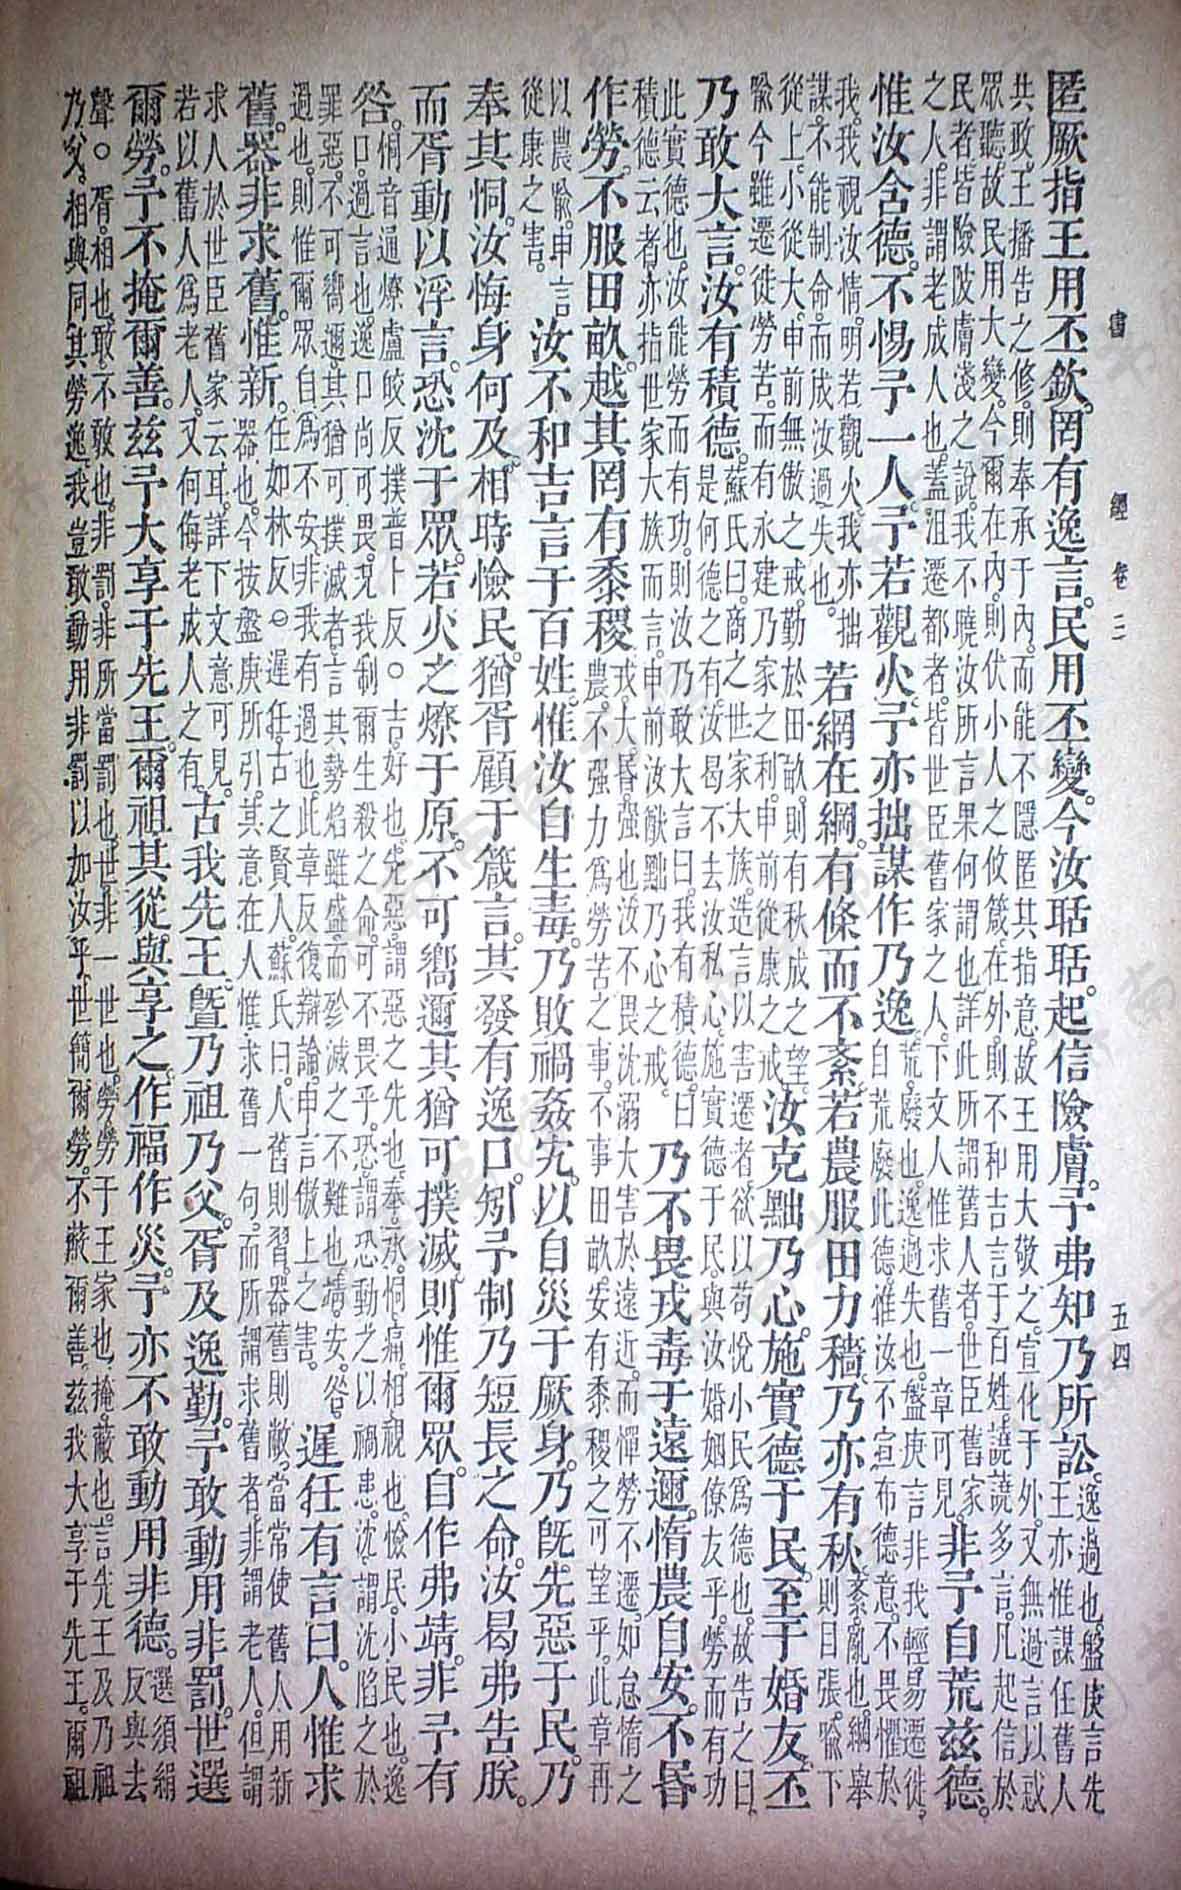 書經 卷三 五四
匿厥指。王用丕欽。罔有逸言。民用丕變。今汝聒聒。起信險膚。予弗知乃所訟。
逸過也。盤庚言先
王亦惟謀任舊人
共政。王播告之修。則奉承于內。而能不隱匿其指意。故王用大敬之。宣化于外。又無過言以惑
眾聽。故民用大變。今爾在內。則伏小人之攸箴。在外。則不和吉言于百姓。譊譊多言。凡起信於
民者。皆險陂膚淺之說。我不曉汝所言果何謂也。詳此所謂舊人者。世臣舊家
之人。非謂老成人也。蓋沮遷都者。皆世臣舊家之人。下文人惟求舊一章可見。
非予自荒茲德。
惟汝含德。不惕予一人。予若觀火。予亦拙謀作乃逸。
荒。廢也。逸。過失也。盤庚言非我輕易遷徙。
自荒廢此德。惟汝不宣布德意。不畏懼於
我。我視汝情。明若觀火。我亦拙
謀。不能制命。而成汝過失也。
若網在綱。有條而不紊。若農服田力穡。乃亦有秋。
紊。亂也。綱舉
則目張。喻下
從上。小從大。申前無傲之戒。勤於田畝。則有秋成之望。
喻今雖遷徙勞苦。而有永建乃家之利。申前從康之戒。
汝克黜乃心。施實德于民。至于婚友。丕
乃敢大言。汝有積德。
蘇氏曰。商之世家大族。造言以害遷者。欲以苟悅小民為德也。故告之曰。
是何德之有。汝曷不去汝私心。施實德于民。與汝婚姻僚友乎。勞而有功
此實德也。汝能勞而有功。則汝乃敢大言曰。我有積德。曰
積德云者。亦指世家大族而言。申前汝猷黜乃心之戒。
乃不畏戎毒于遠邇。惰農自安。不昬
作勞。不服田畝。越其罔有黍稷。
戎。大。昬。強也。汝不畏沈溺大害於遠近。而憚勞不遷。如怠惰之
農。不強力為勞苦之事。不事田畝。安有黍稷之可望乎。此章再
以農喻。申言
從康之害。
汝不和吉言于百姓。惟汝自生毒。乃敗禍姦宄。以自災于厥身。乃旣先惡于民。乃
奉其恫。汝悔身何及。相時憸民。猶胥顧于箴言。其發有逸口。矧予制乃短長之命。汝曷弗告朕。
而胥動以浮言。恐沈于眾。若火之燎于原。不可嚮邇。其猶可撲滅。則惟爾眾。自作弗靖。非予有
咎。
恫音通。燎盧皎反。撲普卜反。○吉。好也。先惡謂惡之先也。奉。承。恫。痛。相。視也。憸民。小民也。逸
口。過言也。逸口尚可畏。況我制爾生殺之命。可不畏乎。恐。謂恐動之以禍患。沈。謂沈陷之於
罪惡。不可嚮邇。其猶可撲滅者。言其勢焰雖盛。而殄滅之不難也。靖。安。咎。
過也。則惟爾眾自為不安。非我有過也。此章反復辯論。申言傲上之害。
遲任有言曰。人惟求
舊。器非求舊。惟新。
任。如林反。○遲任。古之賢人。蘇氏曰。人舊則習。器舊則敝。當常使舊人用新
器也。今按盤庚所引。其意在人惟求舊一句。而所謂求舊者。非謂老人。但謂
求人於世臣舊家云耳。詳下文意可見。
若以舊人為老人。又何侮老成人之有。
古我先王。暨乃祖乃父。胥及逸勤。予敢動用非罰。世選
爾勞。予不掩爾善。茲予大享于先王。爾祖其從與享之。作福作災。予亦不敢動用非德。
選須絹
反與去
聲。○胥。相也。敢。不敢也。非罰。非所當罰也。世。非一世也。勞。勞于王家也。掩。蔽也。言先王及乃祖
乃父。相與同其勞逸。我豈敢動用非罰以加汝乎。世簡爾勞。不蔽爾善。茲我大享于先王。爾祖